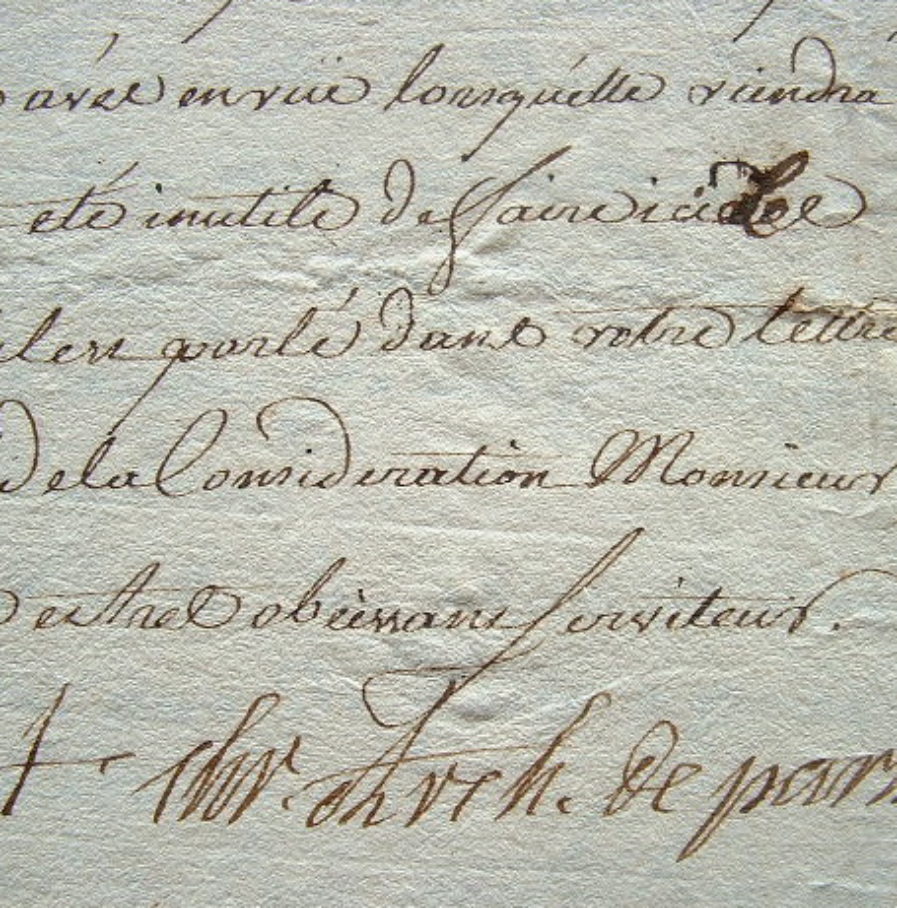 avec en vüe lorsquélle viendra
eté inutile de faire ici
il est parlé dans votre lettre
de la Consideration Monsieur
et tres obeissant serviteur.
+ chr. Arch. de paris